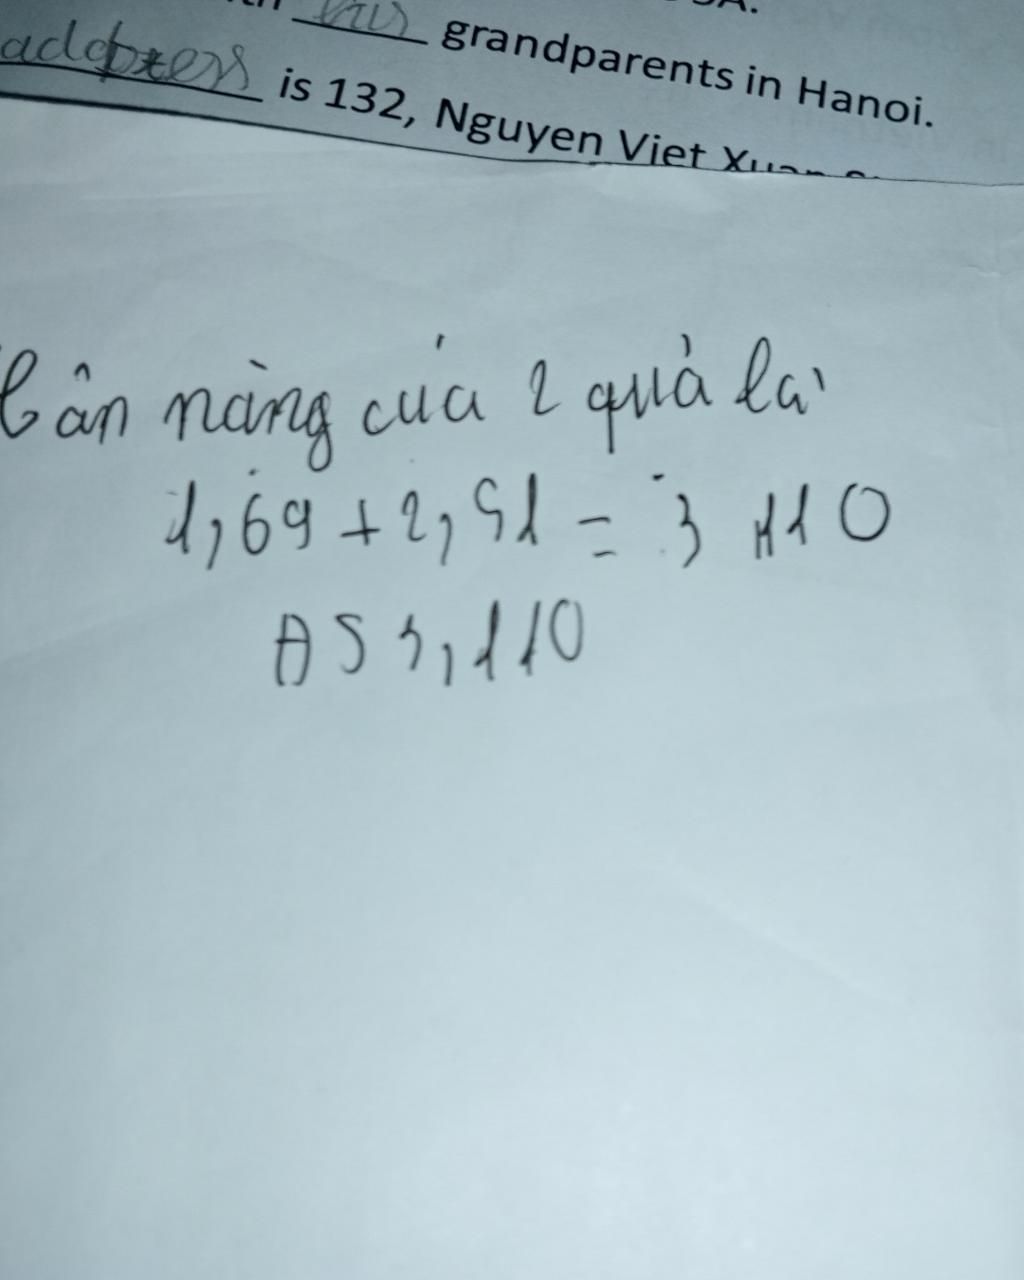 his grandparents in Hanoi.
is 132, Nguyen Viet Xuan
Cân nàng của 2 quả là
1,69 + 2,51 = 3 110
ĐS 3,110